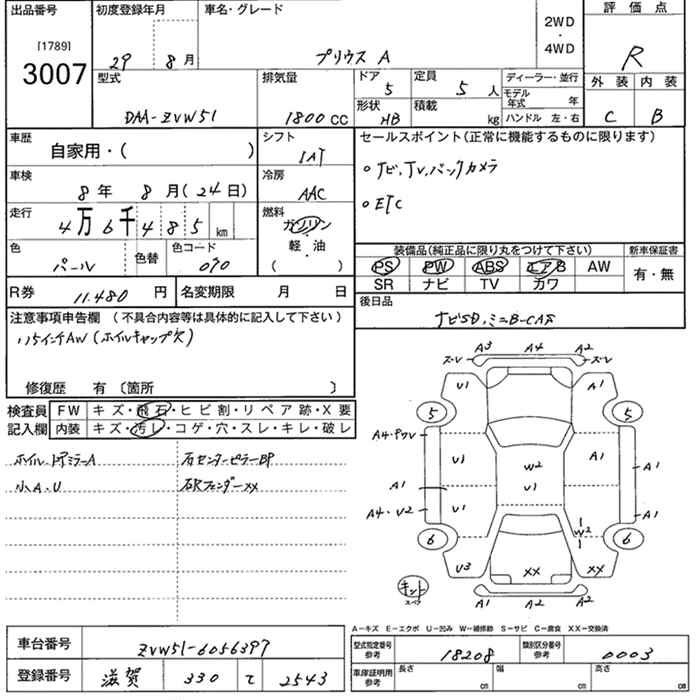 出品番号
[1789]
3007
初度登録年月
29 8月
車名・グレード
プリウス A
2WD
・
4WD
評価点
R
型式
DAA-ZVW51
排気量
1800 CC
ドア
5
定員
5 人
形状
HB
積載
kg
ディーラー・並行
モデル年式 年
ハンドル 左・右
外装 内装
C B
車歴
自家用・( )
シフト
IAT
セールスポイント(正常に機能するものに限ります)
○ナビ,TV,バックカメラ
○ETC
車検
8年 8月(24日)
冷房
AAC
走行
4万6千485km
燃料
ガソリン
・
軽・油
( )
色
パール
色替
色コード
070
装備品(純正品に限り丸をつけて下さい)
PS PW ABS エアB AW
SR ナビ TV カワ
新車保証書
有・無
R券 11.480 円
名変期限 月 日
後日品
ナビSD,ミニB-CAS
注意事項申告欄(不具合内容等は具体的に記入して下さい)
15インチAW(ホイルキャップ欠)
修復歴 有 〔箇所 〕
検査員記入欄
FW キズ・飛石・ヒビ割・リペア跡・X要
内装 キズ・汚レ・コゲ・穴・スレ・キレ・破レ
ホイル,ドアミラーA
小A・U
右センターピラーBP
右Rフェンダーxx
A3 A4 A2
ズ・レ ズ・レ
U1 A1
5 5
A4・Pワレ
U1 W2 A1
A1 U1 A1
A4・U2 U1 A1
W2
6 6
U3 XX XX
キット
スペア
A1 A2 A2
A-キズ E-エクボ U-凹み W-補修跡 S-サビ C-腐食 XX-交換済
車台番号
ZVW51-6056397
登録番号
滋賀 330 て 2543
型式指定番号
参考
18208
類別区分番号
参考
0003
車庫証明用
参考
長さ cm
幅 cm
高さ cm